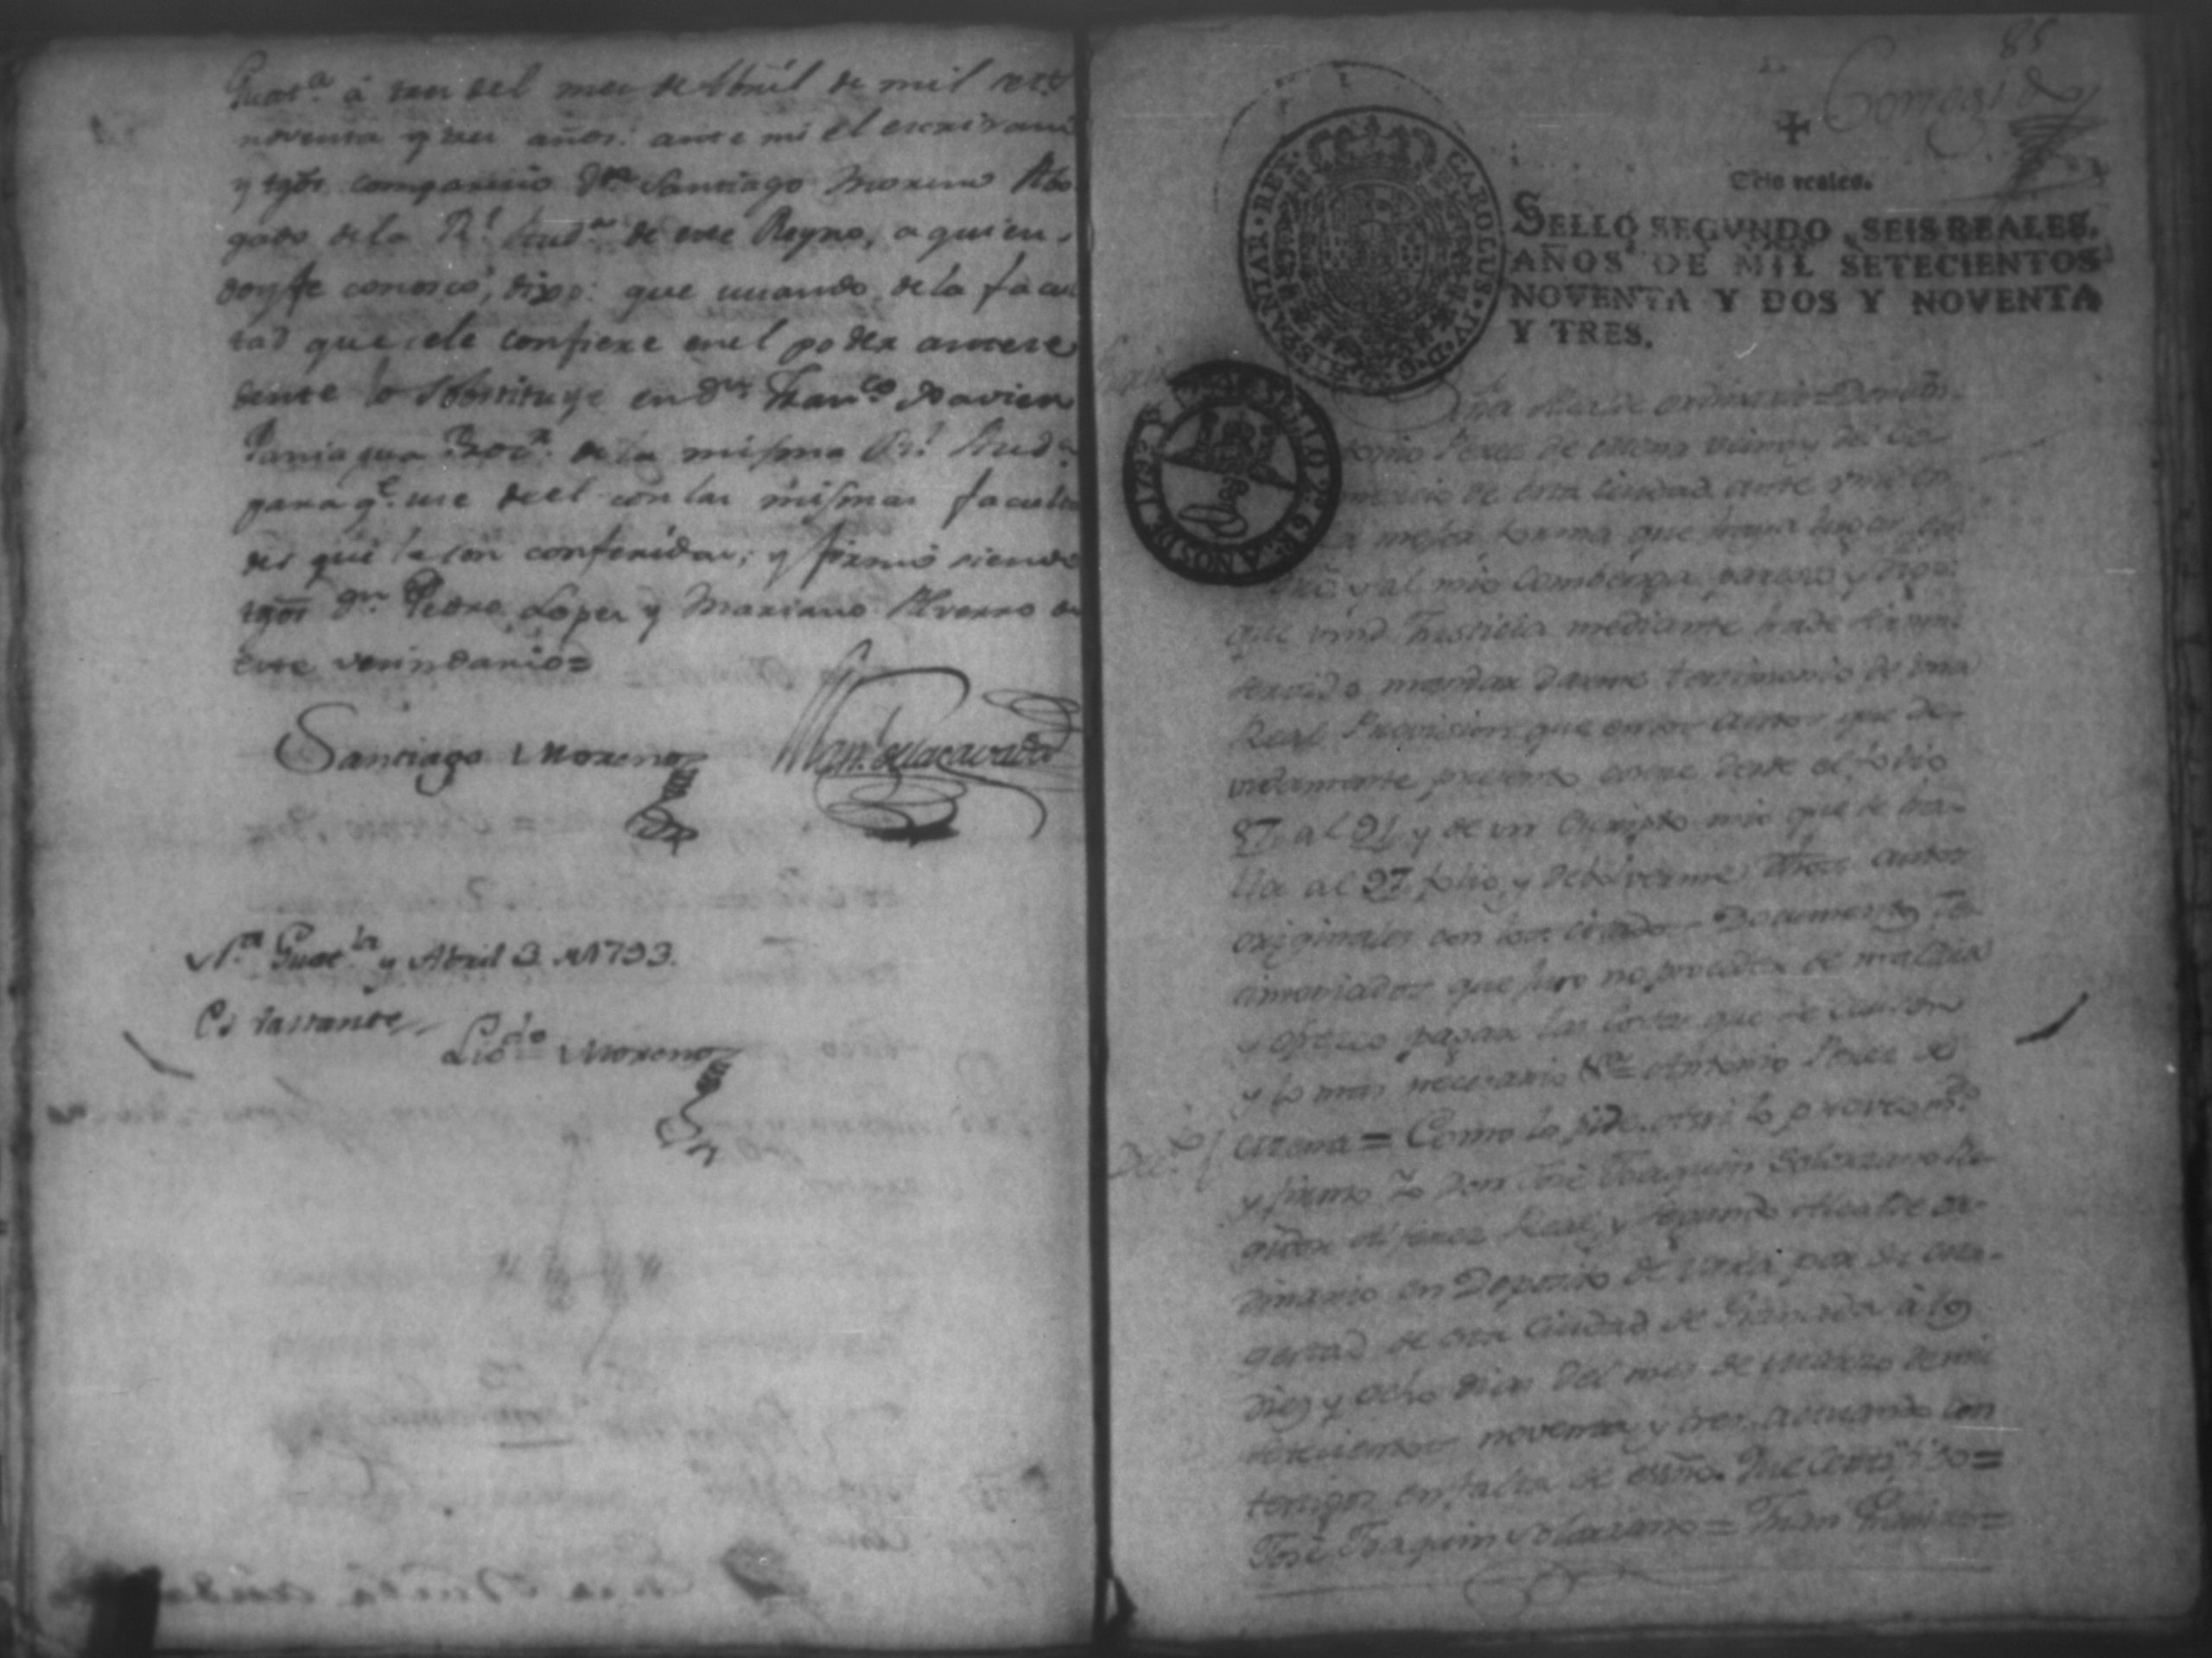 Guat.ª á tres del mes de Abril de mil set.s
noventa y tres años: ante mi el escrivano
y tgõs comparecio D.n Santiago Moreno Abo
gado de la R.l Aud.ª de este Reyno, a quien
doy fe conosco, dixo: que usando de la facul
tad que se le confiere en el poder antece
dente lo sobstituye en D.n Fran.co Xavier
Paniagua Proc.r de la misma R.l Aud.ª
para q.e use de el con las mismas faculta
des que le son conferidas; y firmó siendo
tgõs D.n Pedro Lopez y Mariano Alverro de
este vecindario=
Santiago Moreno
N.ª Guat.la y Abril 3. de 1793.
Es bastante
Lic.do Moreno
85
Corregido
Seis reales.
SELLO SEGVNDO, SEIS REALES,
AÑOS DE MIL SETECIENTOS
NOVENTA Y DOS Y NOVENTA
Y TRES.
CAROLUS·IV·D·G·HISPANIAR·REX·
Alcalde ordinario = Don An
tonio Perez de vezino y del Co
mercio de esta Ciudad ante vmd en
la mejor forma que haya lugar
y al mio combenga paresco y digo:
que vmd Justicia mediante hade
servido mandar darme testimonio de una
Real Provision que en los autos que de
vidamente presento corre desde el folio
87. al 91. y de un Escripto mio que se ha
lla al 97. folio, y debolverme dhõs autos
originales con los citados Documentos Tes
timoniados que juro no proceder de malicia
y ofresco pagar las costas que se causen
y lo mas necesario V.a = Antonio Perez de
= Como lo pide. asi lo proveo m.do
Dec.to
y firmo Yo Don José Joaquin Solorzano Re
gidor Alferez Real, y segundo Alcalde or
dinario en Deposito de vara por su ma
gestad de esta Ciudad de Granada á los
diez y ocho dias del mes de Marzo de mil
setecientos noventa y tres. actuando con
testigos en falta de essno. Que Certifico =
José Joaquin Solorzano = Juan =